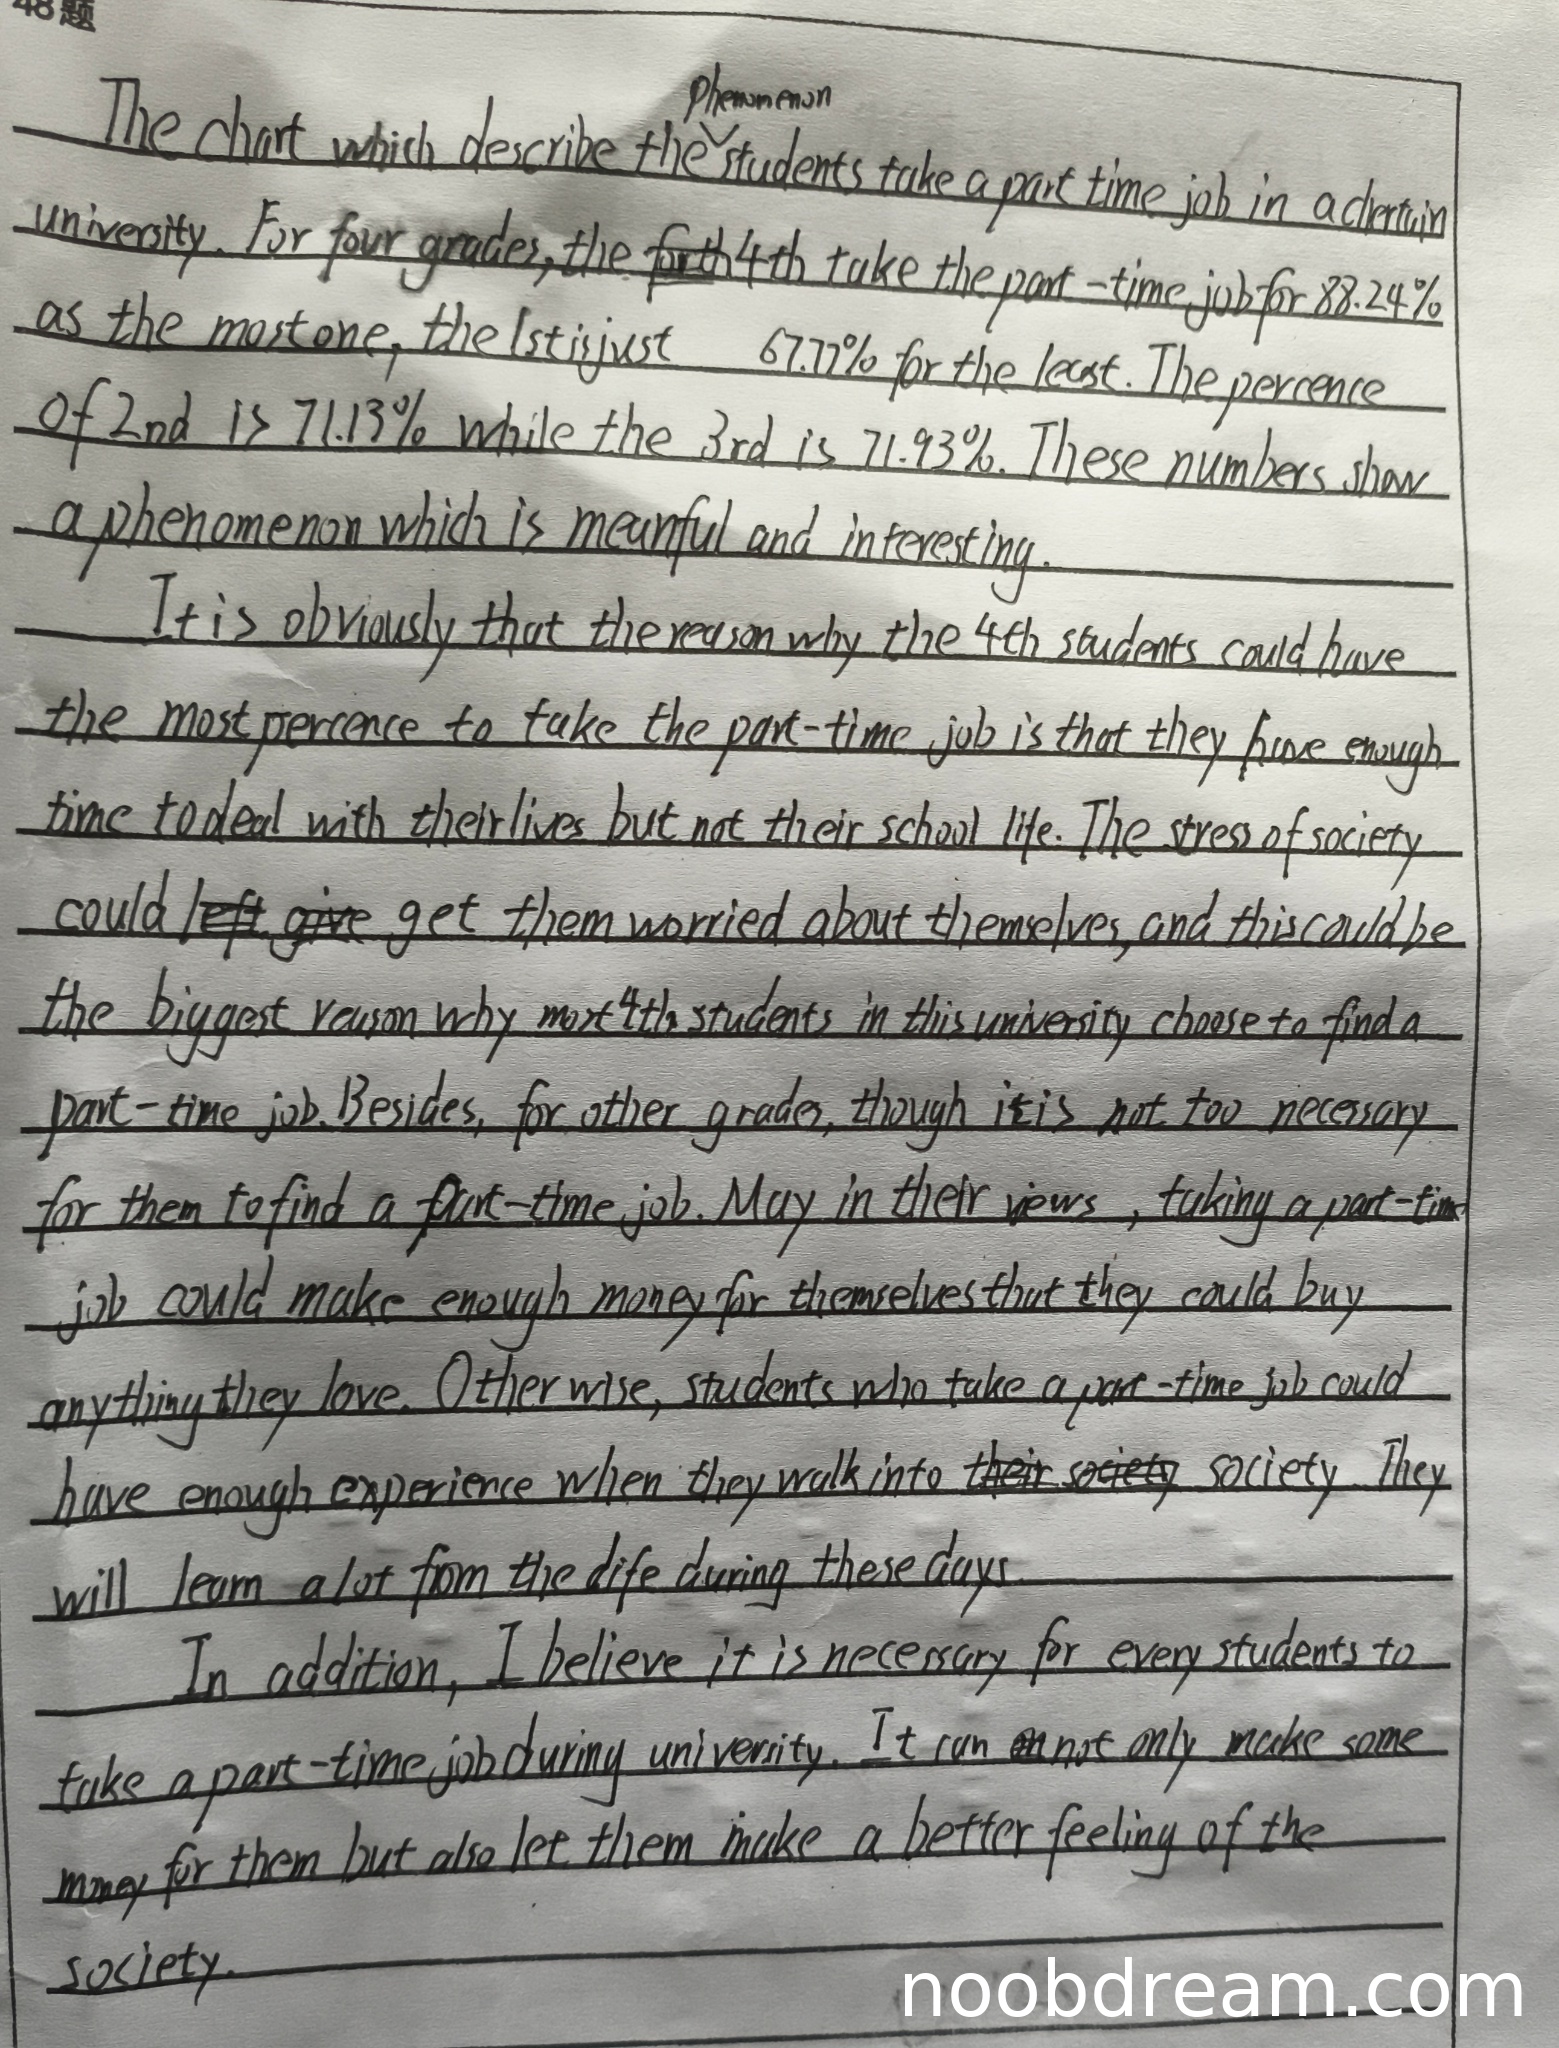 48题
phenomenon
The chart which describe the students take a part time job in a chertain
university. For four grades, the 4th take the part-time job for 88.24%
as the most one, the 1st is just 67.77% for the least. The percence
of 2nd is 71.13% while the 3rd is 71.93%. These numbers show
a phenomenon which is meanful and interesting.
It is obviously that the reason why the 4th students could have
the most percence to take the part-time job is that they have enough
time to deal with their lives but not their school life. The stress of society
could left give get them worried about themselves, and this could be
the biggest reason why most 4th students in this university choose to find a
part-time job. Besides, for other grades, though it is not too necessary
for them to find a part-time job. May in their views, taking a part-time
job could make enough money for themselves that they could buy
anything they love. Otherwise, students who take a part-time job could
have enough experience when they walk into their society society. They
will learn a lot from the dife during these days.
In addition, I believe it is necessary for every students to
take a part-time job during university. It can not only make some
money for them but also let them make a better feeling of the
society.
noobdream.com